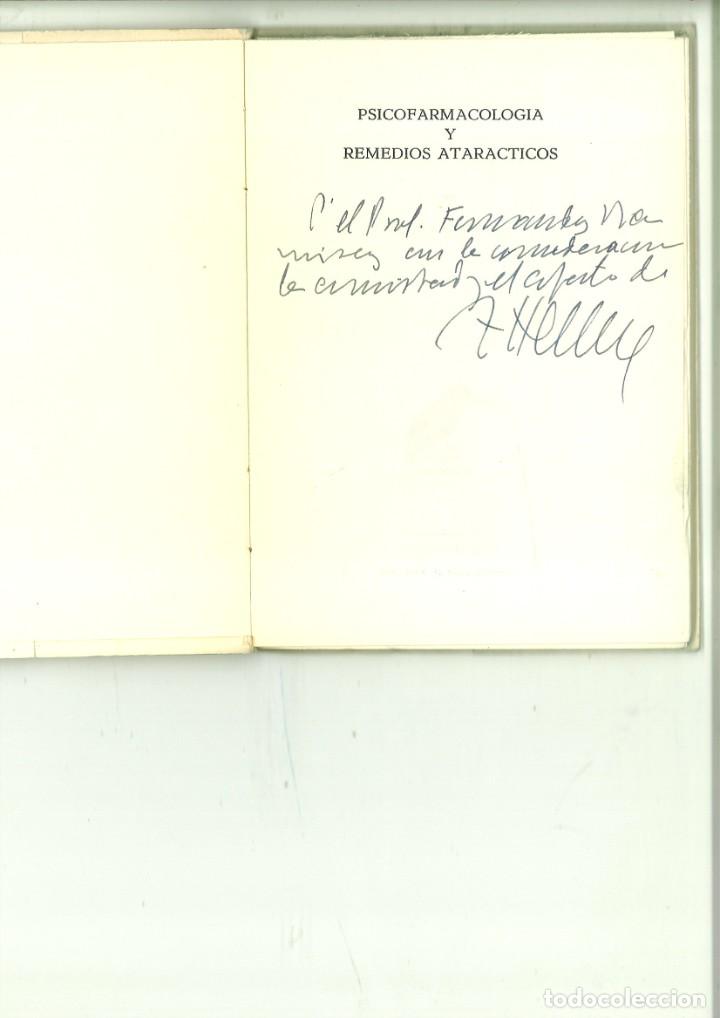 PSICOFARMACOLOGIA
Y
REMEDIOS ATARACTICOS
P' el Prof. Fernandez
con la consideracion
la amistad y el afecto de
todocoleccion